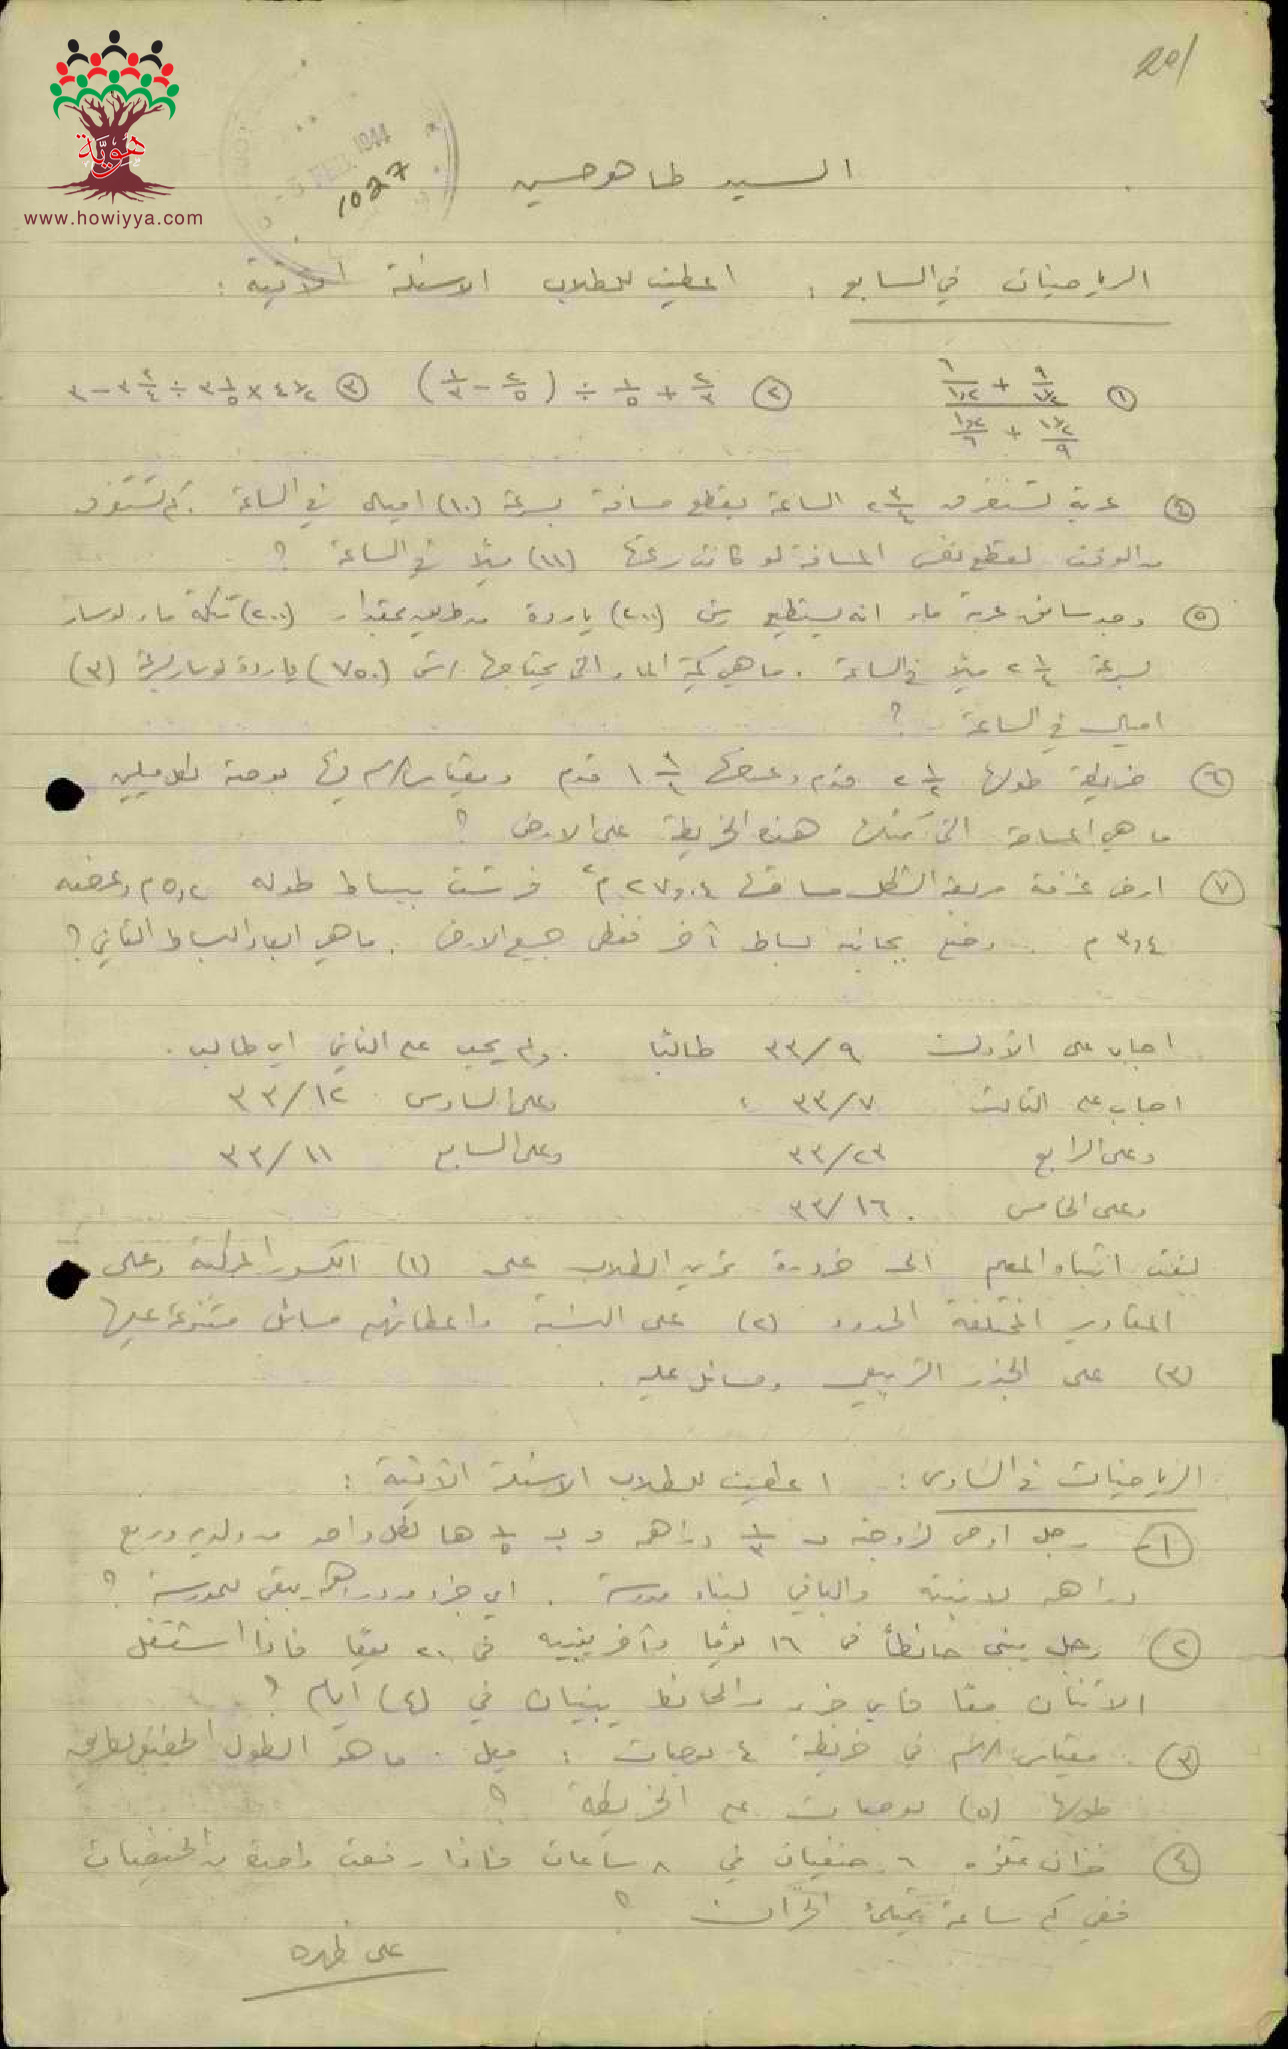 20/
هوية
www.howiyya.com
FEB 1944
1027
السيد طاهر حسين
الرياضيات في السابع : اعطيت للطلاب الاسئلة الآتية :
① ② ٢/٣ + ١/٥ ÷ (٢/٥ - ١/٣) ③
④ عربة تستغرق ٢ ٣/٤ الساعة بقطع مسافة بسرعة (١٠) اميال في الساعة . كم تستغرق
من الوقت لقطع نفس المسافة لو كانت سرعتها (١١) ميلاً في الساعة ؟
⑤ وجد سائق عربة ماء انه يستطيع رش (٢٠٠) ياردة من طريق بمقدار (٢٠٠) تنكة ماء لو سار
بسرعة ٢ ١/٤ ميلاً في الساعة . ما هي كمية الماء التي يحتاجها لرش (٧٥٠) ياردة لو سار بسرعة (٣)
اميال في الساعة ؟
⑥ خريطة طولها ٢ ١/٢ قدم وعرضها قدم ومقياس الرسم فيها بوصة لكل ميلين
ما هي المساحة التي تمثلها هذه الخريطة على الارض ؟
⑦ ارض غرفة مربعة الشكل مساحتها ٢٧,٠٤ م٢ فرشت ببساط طوله ٥,٢ م وعرضه
٣,٤ م . وضع بجانبه بساط آخر فغطى جميع الارض . ما هي ابعاد البساط الثاني ؟
اجاب على الأول ٩/٣٣ طالبًا . ولم يجب على الثاني اي طالب .
اجاب على الثالث ٧/٣٣ وعلى السادس ١٢/٣٣
وعلى الرابع ٢٣/٣٣ وعلى السابع ١١/٣٣
وعلى الخامس ١٦/٣٣ .
لفت انتباه المعلم الى ضرورة تمرين الطلاب على (١) الكسور المركبة وعلى
المقادير المختلفة الحدود (٢) على النسبة واعطائهم مسائل متنوعة عليها
(٣) على الجذر التربيعي ومسائل عليه .
الرياضيات في السادس : اعطيت للطلاب الاسئلة الآتية :
① رجل اوصى لزوجته ب ١/٣ دراهمه و ب ١/٥ ها لكل واحد من ولديه وربع
دراهمه لابنته والباقي لبناء مدرسة . اي جزء من دراهمه يبقى للمدرسة ؟
② رجل يبني حائطًا في ١٦ يومًا وآخر يبنيه في ٢٠ يومًا فاذا اشتغل
الاثنان معًا فاي جزء من الحائط يبنيان في (٤) ايام ؟
③ مقياس الرسم في خريطة ٤ بوصات : ميل . ما هو الطول الحقيقي لطريق
طولها (٥) بوصات على الخريطة ؟
④ خزان تملؤه ٦ حنفيات في ٨ ساعات فاذا رفعت واحدة من الحنفيات
ففي كم ساعة يمتلئ الخزان ؟
على ظهره